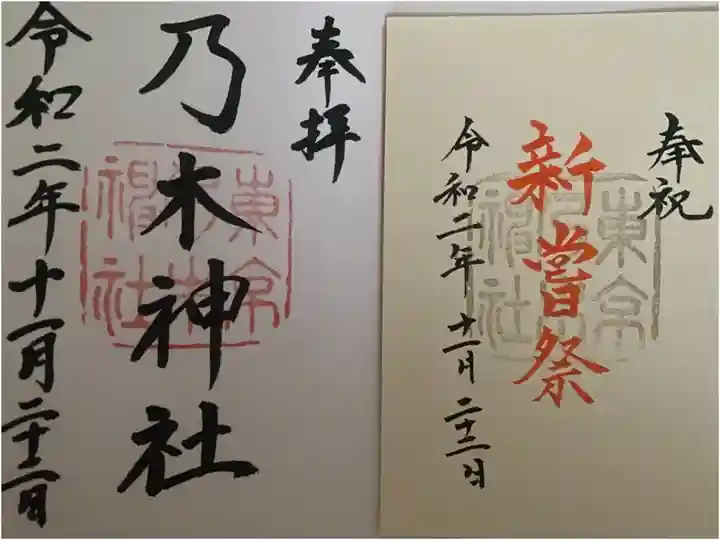 奉拝
乃木神社
令和二年十一月二十三日
東京
神社
奉祝
新嘗祭
令和二年十一月二十三日
東京
神社